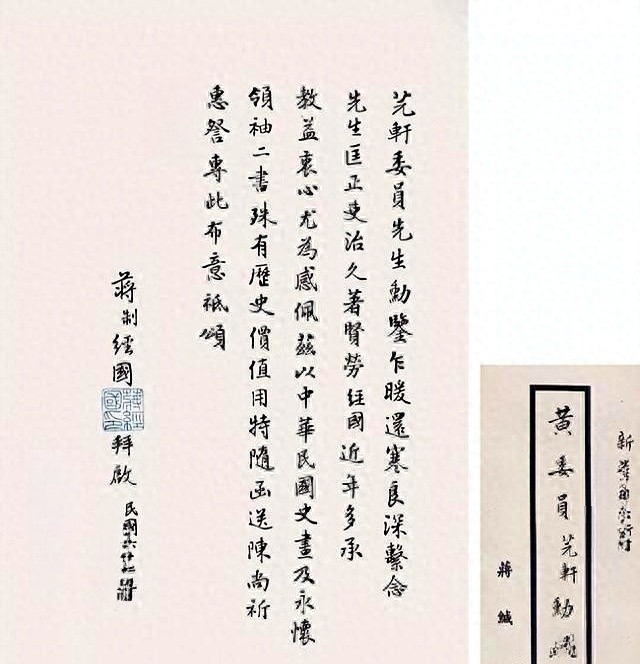 芫軒委員先生勳鑒乍暖還寒良深繫念
先生匡正吏治久著賢勞經國近年多承
教益衷心尤為感佩茲以中華民國史畫及永懷
領袖二書殊有歷史價值用特隨函送陳尚祈
惠詧專此布意祗頌
蔣制經國 拜啟
蔣經國印
民國六十
新
黃委員芫軒勳
蔣緘